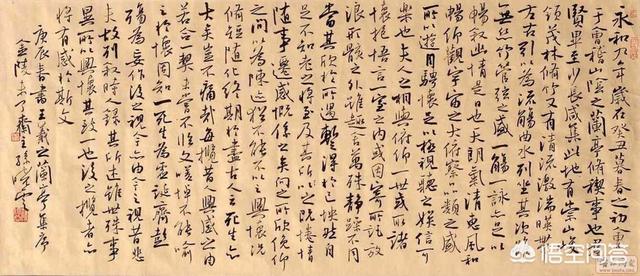 永和九年歲在癸丑暮春之初會
于會稽山陰之蘭亭脩禊事也羣
賢畢至少長咸集此地有崇山峻
領茂林脩竹又有清流激湍暎帶
左右引以為流觴曲水列坐其次
雖無絲竹管弦之盛一觴一詠亦足以
暢叙幽情是日也天朗氣清惠風和
暢仰觀宇宙之大俯察品類之盛
所以遊目騁懷足以極視聽之娛信可
樂也夫人之相與俯仰一世或取諸
懷抱悟言一室之內或因寄所託放
浪形骸之外雖趣舍萬殊靜躁不同
當其欣於所遇暫得於己怏然自
足不知老之將至及其所之既惓情
隨事遷感慨係之矣向之所欣俛仰
之間以為陳迹猶不能不以之興懷況
脩短隨化終期於盡古人云死生亦
大矣豈不痛哉每攬昔人興感之由
若合一契未嘗不臨文嗟悼不能喻
之於懷固知一死生為虛誕齊彭
殤為妄作後之視今亦由今之視昔悲
夫故列叙時人錄其所述雖世殊事
異所以興懷其致一也後之攬者亦
將有感於斯文
庚辰春書王羲之蘭亭集序
金陵未了齋主孫曉雲
悟空问答